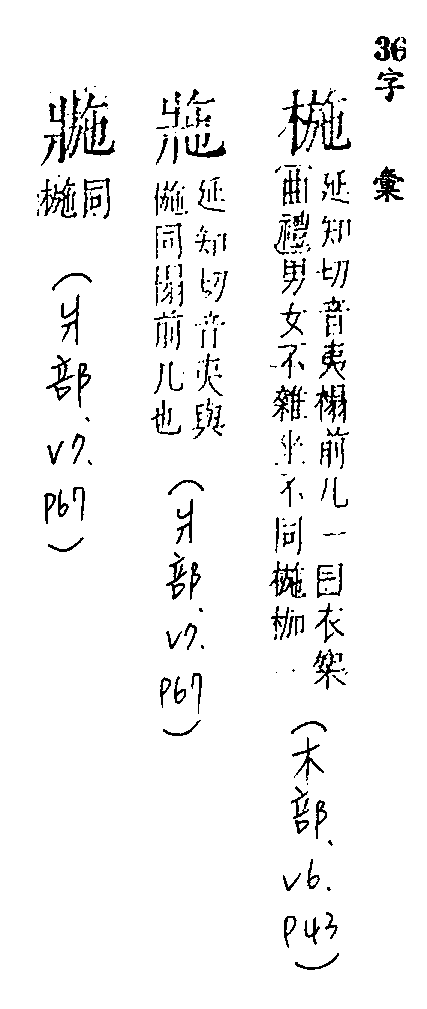 36字彙
椸
延知切音夷榻前几一曰衣架
曲禮男女不雜坐不同椸枷
(木部、v6.P43)
延知切音夷與
椸同榻前几也
(爿部、v7.P67)
同
椸
(爿部、v7.P67)